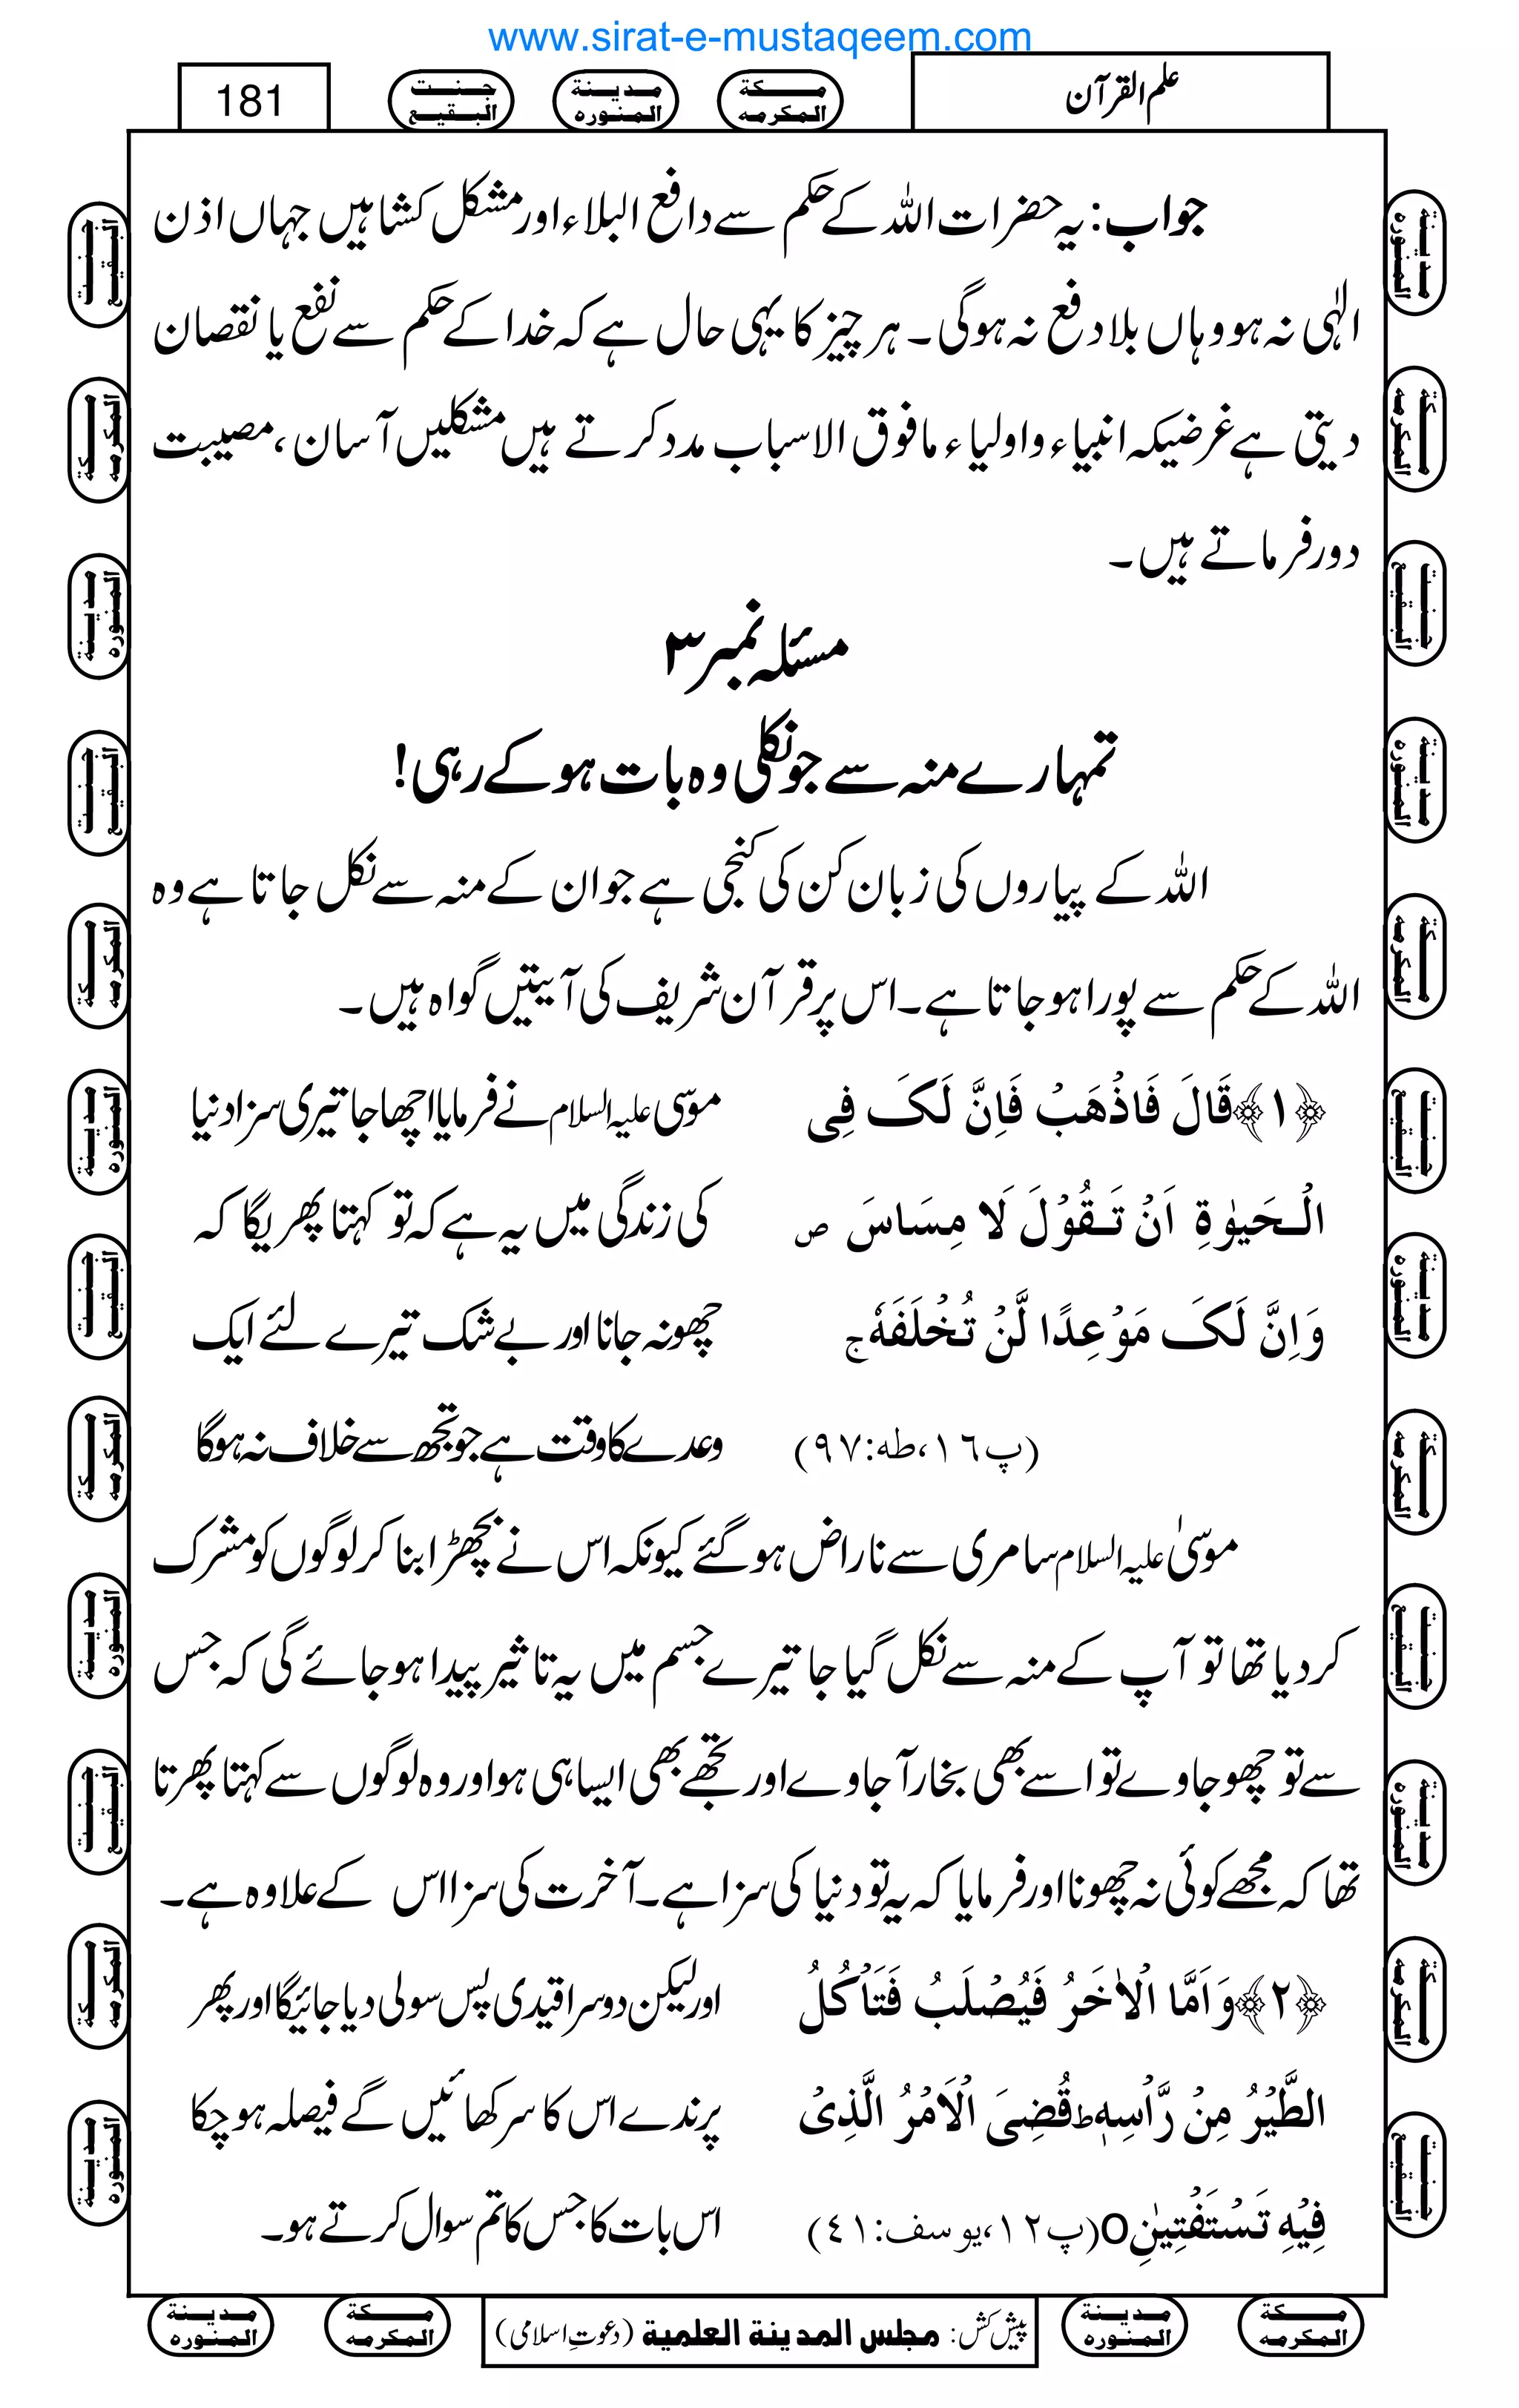 www.sirat-e-mustaqeem.com
علم القرآن
مکة المکرمه
مدینة المنوره
جنت البقیع
181
جواب: یہ حضرات اللہ کے حکم سے دافع البلاء اور مشکل کشا ہیں جہاں اذن
الٰہی نہ ہو وہاں بلا دفع نہ ہوگی۔ ہر چیز کا یہی حال ہے کہ خدا کے حکم سے نفع یا نقصان
دیتی ہے غرضیکہ انبیاء و اولیاء مافوق الاسباب مدد کرتے ہیں مشکلیں آسان، مصیبت
دور فرماتے ہیں۔
مسئلہ نمبر ۳
تمہارے منہ سے جو نکلی وہ بات ہو کے رہی!
اللہ کے پیاروں کی زبان کن کی کنجی ہے جو ان کے منہ سے نکل جاتا ہے وہ
اللہ کے حکم سے پورا ہو جاتا ہے۔ اس پر قرآن شریف کی آیتیں گواہ ہیں۔
﴿۱﴾ قَالَ فَاذْهَبْ فَاِنَّ لَکَ فِی
الْحَیٰوةِ اَنْ تَقُوْلَ لَا مِسَاسَ ص
وَاِنَّ لَکَ مَوْعِدًا لَّنْ تُخْلَفَهٗ ج
(پ١٦،طه:٩٧)
موسیٰ علیہ السلام نے فرمایا اچھا جا تیری سزا دنیا
کی زندگی میں یہ ہے کہ تو کہتا پھریگا کہ
چھو نہ جانا اور بے شک تیرے لئے ایک
وعدے کا وقت ہے جو تجھ سے خلاف نہ ہوگا
موسیٰ علیہ السلام سامری سے ناراض ہو گئے کیونکہ اس نے بچھڑا بنا کر لوگوں کو مشرک
کر دیا تھا تو آپ کے منہ سے نکل گیا جا تیرے جسم میں یہ تاثیر پیدا ہو جائے گی کہ جس
سے تو چھو جاوے تو اسے بھی بخار آجاوے اور تجھے بھی ایسا ہی ہو اور وہ لوگوں سے کہتا پھرتا
تھا کہ مجھے کوئی نہ چھونا اور فرمایا کہ یہ تو دنیا کی سزا ہے۔ آخرت کی سزا اس کے علاوہ ہے۔
﴿۲﴾ وَاَمَّا الْاٰخَرُ فَیُصْلَبُ فَتَاْکُلُ
الطَّیْرُ مِنْ رَّاْسِهٖ ط قُضِیَ الْاَمْرُ الَّذِیْ
فِیْهِ تَسْتَفْتِیٰنِ O (پ١٢،یوسف:٤١)
اور لیکن دوسرا قیدی پس سولی دیا جائیگا اور پھر
پرندے اس کا سر کھائیں گے فیصلہ ہو چکا
اس بات کا جس کا تم سوال کرتے ہو۔
پیش کش: مجلس المدینة العلمیة (دعوتِ اسلامی)
مکة المکرمه
مدینة المنوره
مکة المکرمه
مدینة المنوره